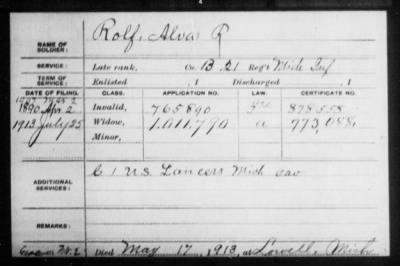 Rolf, Alva R
NAME OF SOLDIER:
SERVICE: Late rank, Co. B. 21 Reg't Mich Inf
TERM OF SERVICE: Enlisted , 1 Discharged , 1
DATE OF FILING. CLASS. APPLICATION NO. LAW. CERTIFICATE NO.
1890 Apr 2 Invalid, 765890 878558
1913 July 25 Widow, 1.011.790 a 773,088
Minor,
ADDITIONAL SERVICES: C 1 U.S. Lancers Mich cav
REMARKS:
Died May 17, 1913, at Lowell, Mich